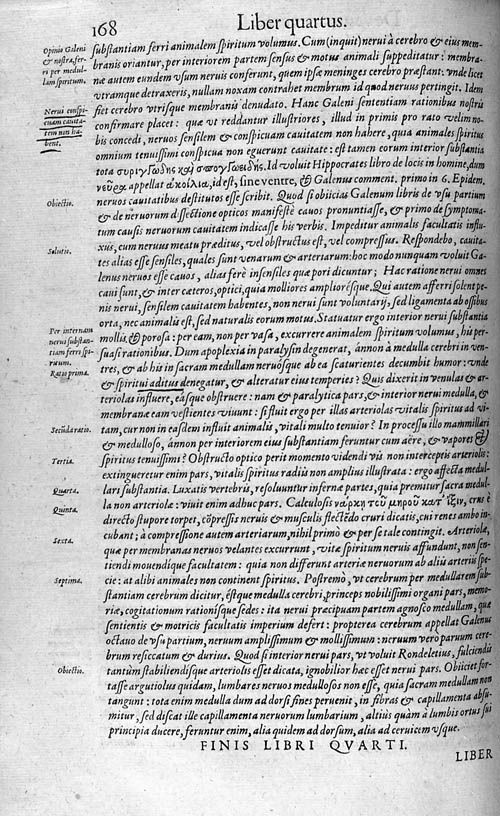 168
Liber quartus.
Opinio Galeni
& nostra, fer-
ri per medul-
lam spiritum.
Nerui conspi-
cuam cauita-
tem non ha-
bent.
Obiectio.
Solutio.
Per internam
nerui substan-
tiam ferri spi-
ritum.
Ratio prima.
Secūda ratio.
Tertia.
Quarta.
Quinta.
Sexta.
Septima.
Obiectio.
substantiam ferri animalem spiritum volumus. Cum (inquit) nerui à cerebro & eius mem-
branis oriantur, per interiorem partem sensus & motus animali suppeditatur: membra-
næ autem eundem vsum neruis conferunt, quem ipsæ meninges cerebro præstant: vnde licet
vtramque detraxeris, nullam noxam contrahet membrum id quod neruus pertingit. Idem
fiet cerebro vtrisque membranis denudato. Hanc Galeni sententiam rationibus nostris
confirmare placet: quæ vt reddantur illustriores, illud in primis pro rato velim no-
bis concedi, neruos sensilem & conspicuam cauitatem non habere, quia animales spiritus
omnium tenuissimi conspicua non eguerunt cauitate: est tamen eorum interior substantia
tota συριγγώδης καὶ σπογγοειδής. Id voluit Hippocrates libro de locis in homine, dum
νεῦρα appellat ἀκοίλια, id est, sine ventre, & Galenus comment. primo in 6. Epidem.
neruos cauitatibus destitutos esse scribit. Quod si obiicias Galenum libris de vsu partium
& de neruorum dissectione opticos manifestè cauos pronuntiasse, & primo de symptoma-
tum causis neruorum cauitatem indicasse his verbis. Impeditur animalis facultatis influ-
xus, cum neruus meatu præditus, vel obstructus est, vel compressus. Respondebo, cauita-
tes alias esse sensiles, quales sunt venarum & arteriarum: hoc modo nunquam voluit Ga-
lenus neruos esse cauos, alias ferè insensiles quæ pori dicuntur; Hac ratione nerui omnes
caui sunt, & inter cæteros, optici, quia molliores amplioresque. Qui autem afferri solent pe-
nis nerui, sensilem cauitatem habentes, non nerui sunt voluntarij, sed ligamenta ab ossibus
orta, nec animalis est, sed naturalis eorum motus. Statuatur ergo interior nerui substantia
mollis & porosa: per eam, non per vasa, excurrere animalem spiritum volumus, his per-
suasi rationibus. Dum apoplexia in paralysin degenerat, ánnon à medulla cerebri in ven-
tres, & ab his in sacram medullam neruosque ab ea scaturientes decumbit humor: vnde
& spiritui aditus denegatur, & alteratur eius temperies? Quis dixerit in venulas & ar-
teriolas influere, easque obstruere: nam & paralytica pars, & interior nerui medulla, &
membranæ eam vestientes viuunt: si fluit ergo per illas arteriolas vitalis spiritus ad vi-
tam, cur non in easdem influit animalis, vitali multo tenuior? In processu illo mammillari
& medulloso, ánnon per interiorem eius substantiam feruntur cum aëre, & vapores &
spiritus tenuissimi? Obstructo optico perit momento videndi vis non interceptis arteriolis:
extingueretur enim pars, vitalis spiritus radiis non amplius illustrata: ergo affecta medul-
laris substantia. Luxatis vertebris, resoluuntur infernæ partes, quia premitur sacra medul-
la non arteriolæ: viuit enim adhuc pars. Calculosis νάρκη τοῦ μηροῦ κατ' ἴξιν, crus è
directo stupore torpet, cōpressis neruis & musculis flectēdo cruri dicatis, cui renes ambo in-
cubant; à compressione autem arteriarum, nihil primò & per se tale contingit. Arteriolæ,
quæ per membranas neruos velantes excurrunt, vitæ spiritum neruis affundunt, non sen-
tiendi mouendique facultatem: quia non differunt arteriæ neruorum ab aliis arteriis spe-
cie: at alibi animales non continent spiritus. Postremò, vt cerebrum per medullarem sub-
stantiam cerebrum dicitur, estque medulla cerebri, princeps nobilissimi organi pars, memo-
riæ, cogitationum rationisque sedes: ita nerui præcipuam partem agnosco medullam, quæ
sentientis & motricis facultatis imperium defert: propterea cerebrum appellat Galenus
octauo de vsu partium, neruum amplissimum & mollissimum: neruum verò paruum cere-
brum resiccatum & durius. Quod si interior nerui pars, vt voluit Rondeletius, fulciendis
tantùm stabiliendisque arteriolis esset dicata, ignobilior hæc esset nerui pars. Obiiciet for-
tasse argutiolus quidam, lumbares neruos medullosos non esse, quia sacram medullam non
tangunt: tota enim medulla dum ad dorsi fines peruenit, in fibras & capillamenta absu-
mitur, sed discat ille capillamenta neruorum lumbarium, altiùs quàm à lumbis ortus sui
principia ducere, feruntur enim, alia quidem ad dorsum, alia ad ceruicem vsque.
FINIS LIBRI QVARTI.
LIBER